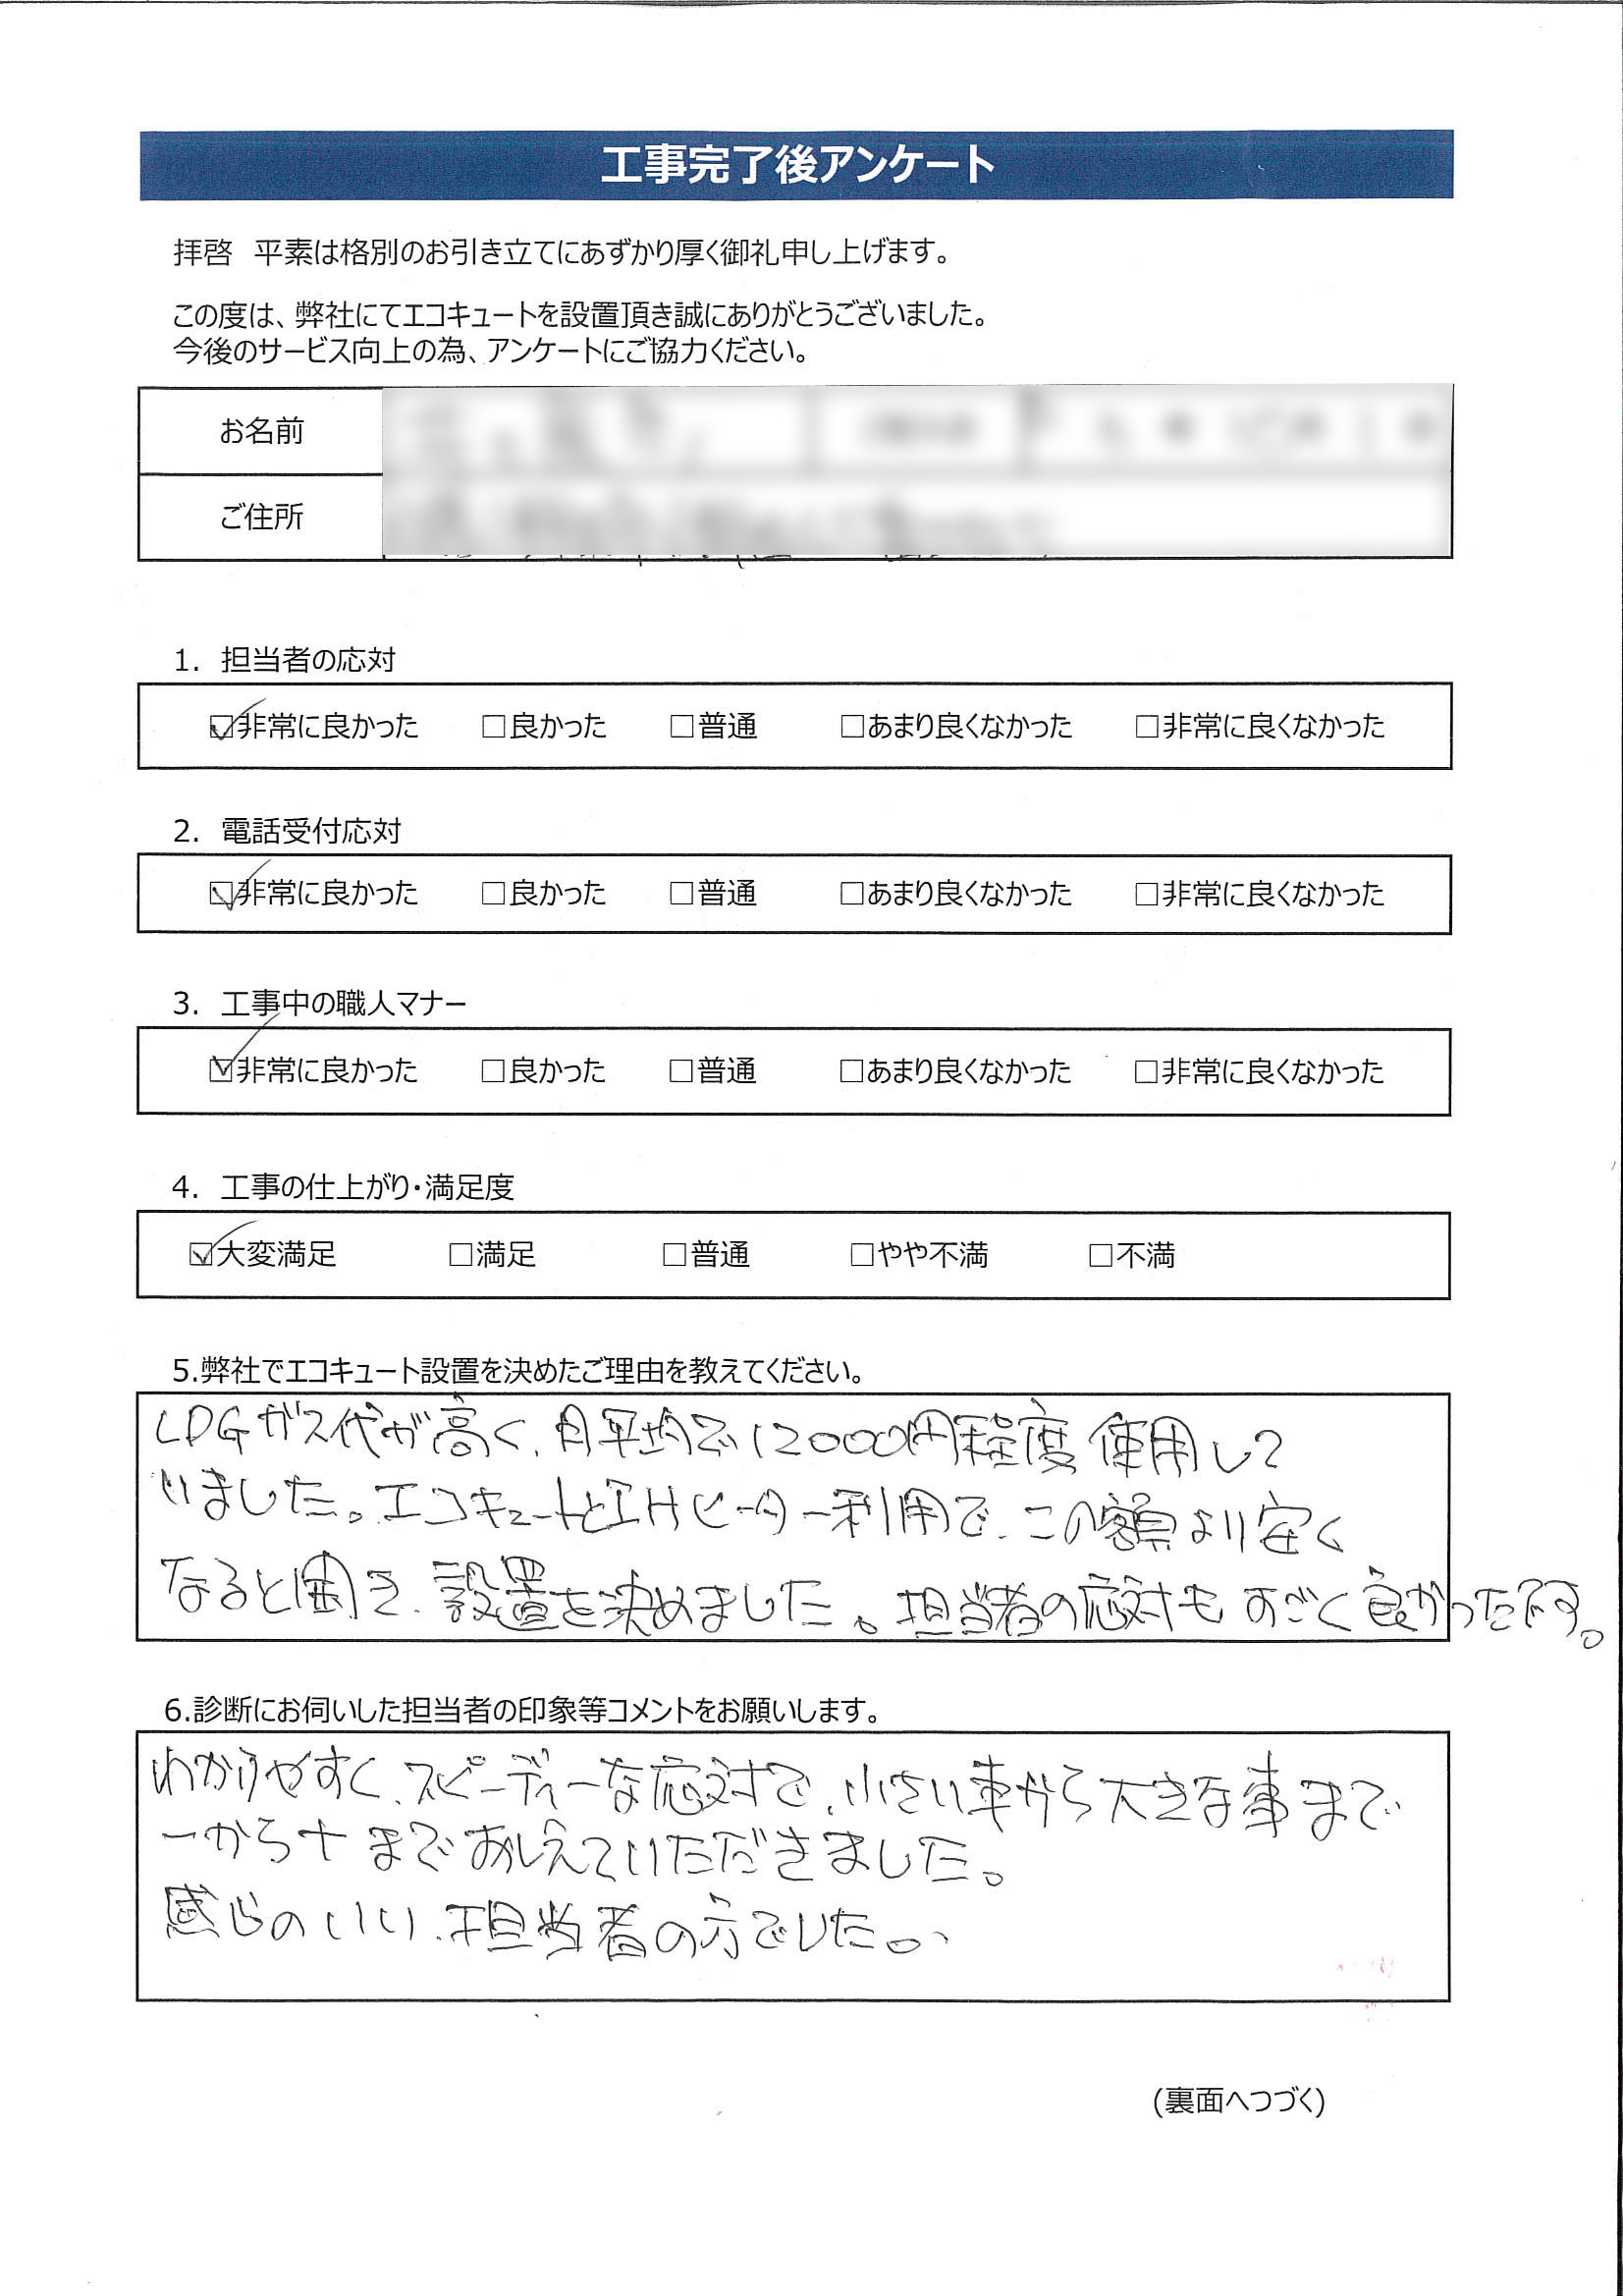 工事完了後アンケート
拝啓　平素は格別のお引き立てにあずかり厚く御礼申し上げます。
この度は、弊社にてエコキュートを設置頂き誠にありがとうございました。
今後のサービス向上の為、アンケートにご協力ください。
お名前
ご住所
1.　担当者の応対
☑非常に良かった　□良かった　□普通　□あまり良くなかった　□非常に良くなかった
2.　電話受付応対
☑非常に良かった　□良かった　□普通　□あまり良くなかった　□非常に良くなかった
3.　工事中の職人マナー
☑非常に良かった　□良かった　□普通　□あまり良くなかった　□非常に良くなかった
4.　工事の仕上がり・満足度
☑大変満足　□満足　□普通　□やや不満　□不満
5.弊社でエコキュート設置を決めたご理由を教えてください。
LPGガス代が高く、月平均で12000円程度使用して
いました。エコキュートとIHヒーター利用で、この額より安く
なると聞き、設置を決めました。担当者の応対もすごく良かったです。
6.診断にお伺いした担当者の印象等コメントをお願いします。
わかりやすく、スピーディーな応対で、小さい事から大きな事まで
一から十までおしえていただきました。
感じのいい、担当者の方でした。
(裏面へつづく)